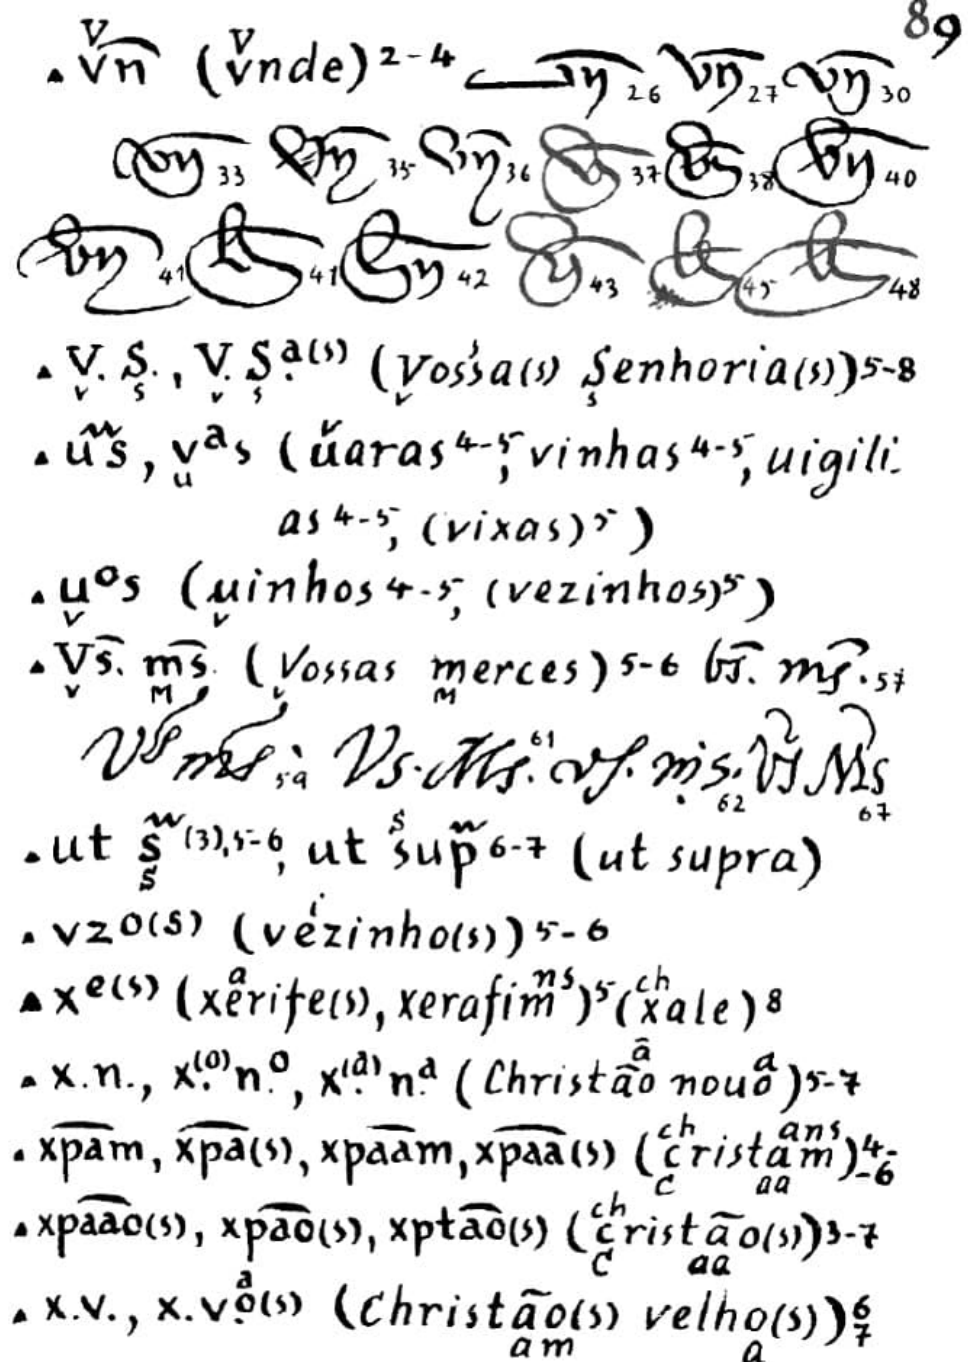 89
. vn (vnde) 2-4 26 vn 27 vn 30
vn 33 vn 35 vn 36 37 38 vn 40
vn 41 41 vn 42 43 45 48
. V. S., V. S.a(s) (Vossa(s) Senhoria(s)) 5-8
. ũs, vas (uaras 4-5, vinhas 4-5, uigili-
as 4-5, (vixas) 5)
. uos (uinhos 4-5, (vezinhos) 5)
. Vs. ms. (Vossas merces) 5-6 Vs. ms. 57
Vs ms 59 Vs. Ms. 61 vs. ms. 62 Vs Ms 67
. ut s (3), 5-6, ut sup 6-7 (ut supra)
. vzo(s) (vezinho(s)) 5-6
. xe(s) (xerife(s), xerafim ns) 5 (xale) 8 ch
. x.n., x.(o) n.o, x.(a) n.a (Christão nouo) 5-7
. xpam, xpa(s), xpaam, xpaa(s) (cristam) 4-6
. xpaao(s), xpao(s), xptao(s) (cristão(s)) 3-7
. x.v., x.vo(s) (Christão(s) velho(s)) 6 7
am a